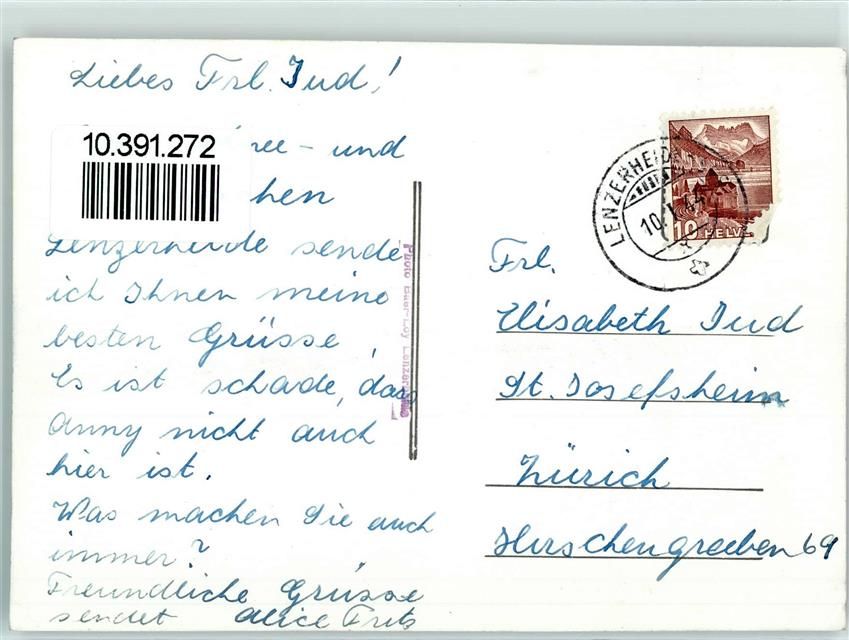 Liebes Frl. Jud!
10.391.272
ree - und
hen
Lenzerheide sende
ich Ihnen meine
besten Grüsse,
Es ist schade, dass
Anny nicht auch
hier ist.
Was machen Sie auch
immer?
Freundliche Grüsse
sendet Alice Fritz
Photo Lenzerheide
LENZERHEIDE
10.
10 HELV
Frl.
Elisabeth Jud
St. Josefsheim
Zürich
Hirschengraben 69